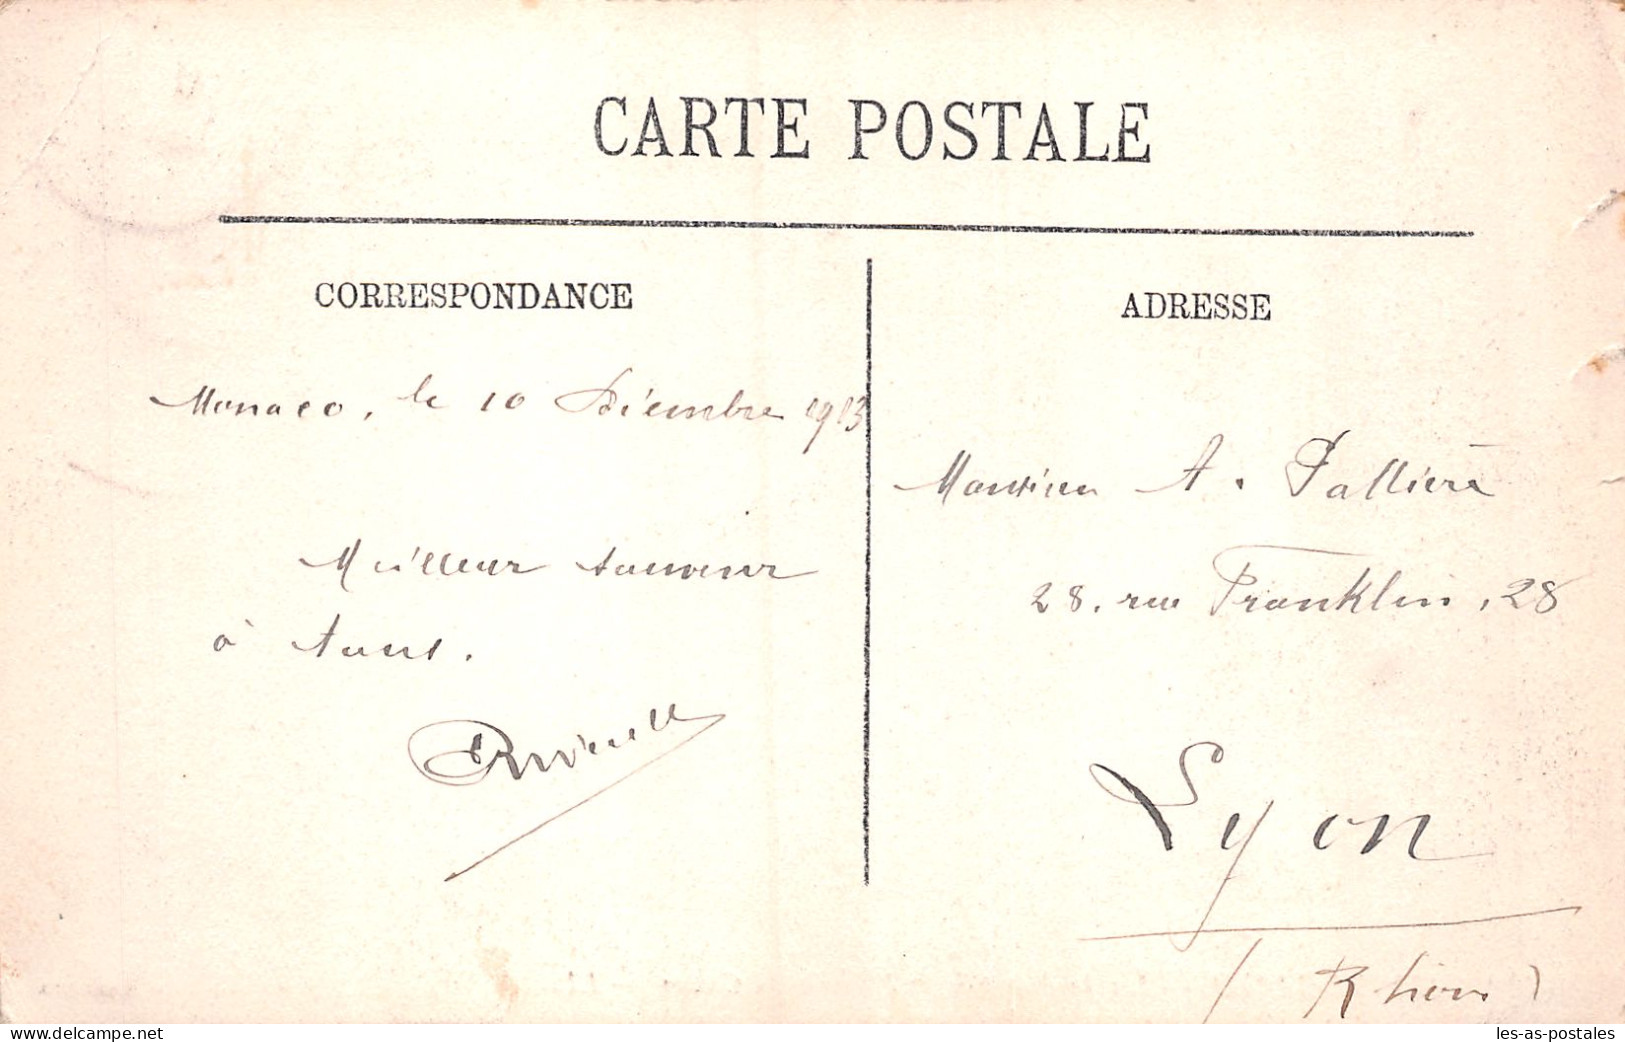 CARTE POSTALE
CORRESPONDANCE
ADRESSE
Monaco, le 10 Décembre 1913
Meilleur souvenir
à tous.
Monsieur A. Pallière
28, rue Franklin, 28
Lyon
(Rhône)
les-as-postales